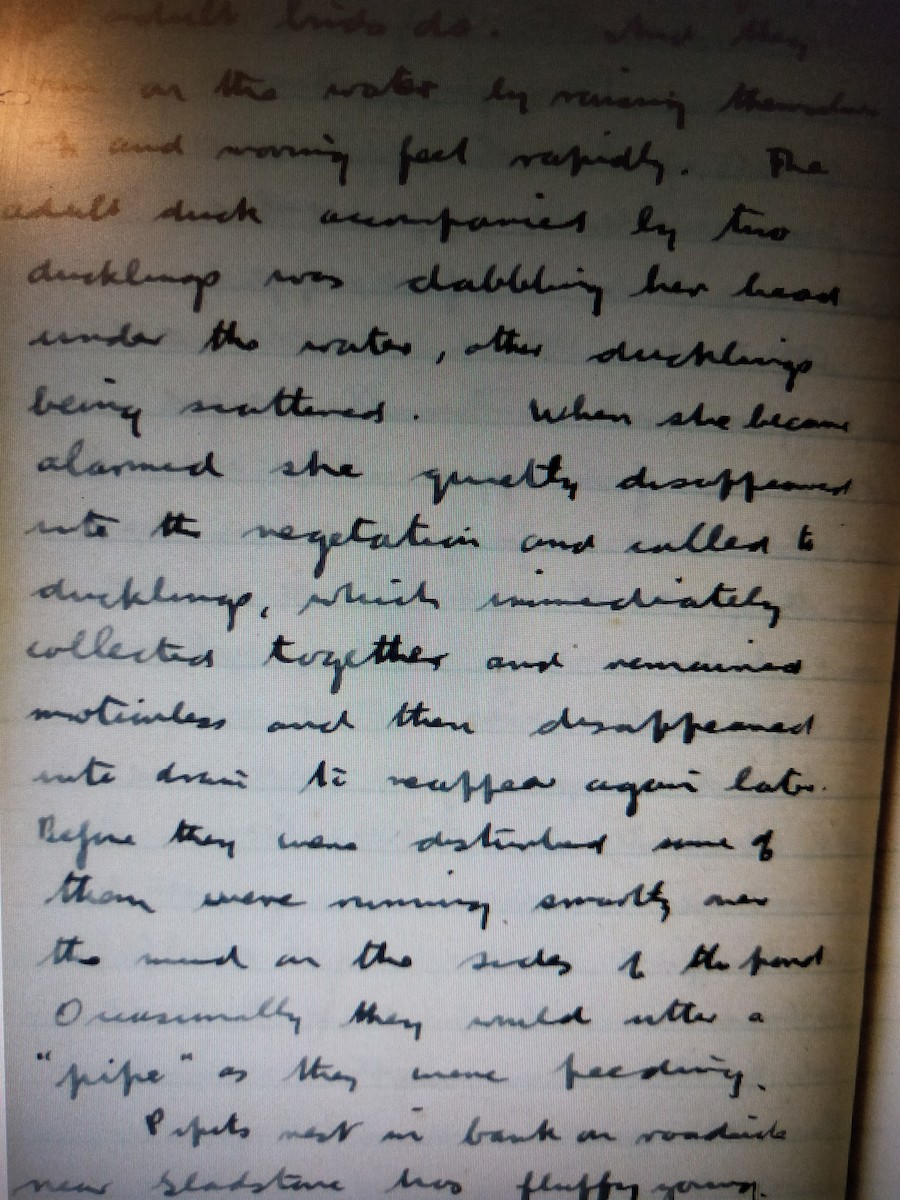 adult birds do. And they
on the water by raising themselves
and moving feet rapidly. The
adult duck accompanied by two
ducklings was dabbling her head
under the water, other ducklings
being scattered. When she became
alarmed she quietly disappeared
into the vegetation and called to
ducklings, which immediately
collected together and remained
motionless and then disappeared
into drain to reappear again later.
Before they were disturbed some of
them were running smartly over
the mud on the sides of the pond
Occasionally they would utter a
"pipe" as they were feeding.
Pipits nest in bank on roadside
near Gladstone has fluffy young.